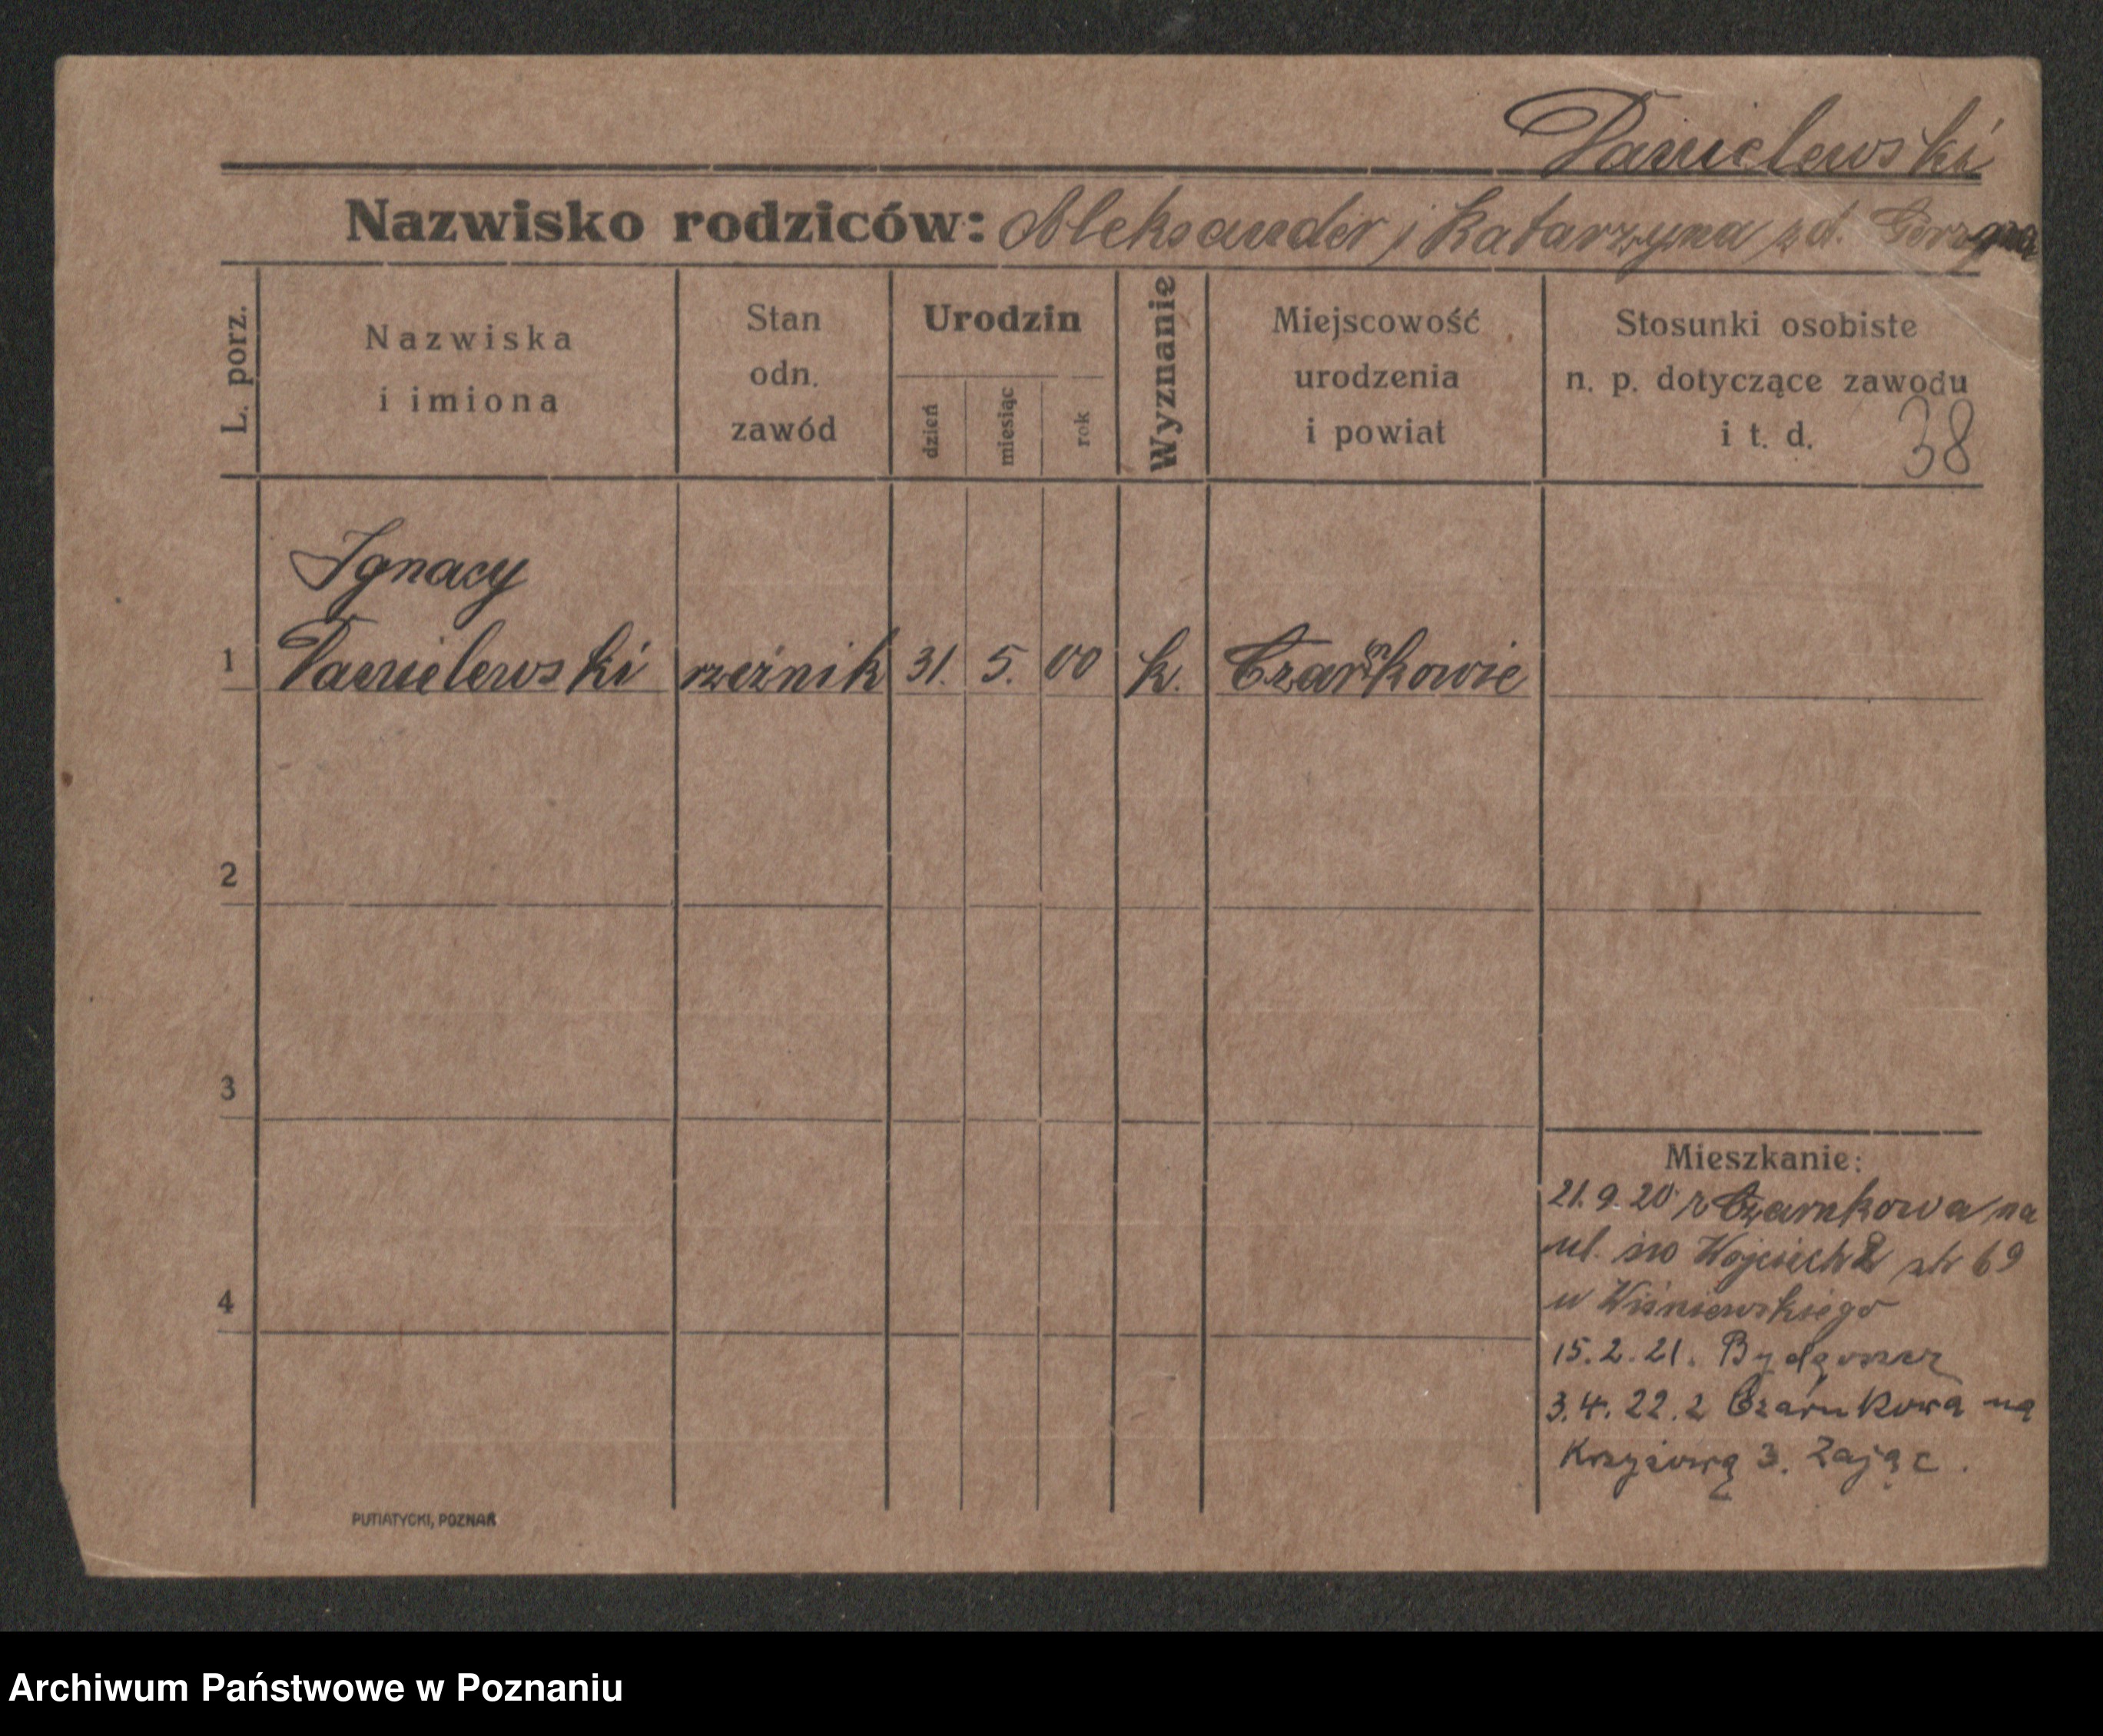 Danielewski
Nazwisko rodziców: Aleksander i Katarzyna zd.
L. porz.
Nazwiska
i imiona
Stan
odn.
zawód
Urodzin
dzień
miesiąc
rok
Wyznanie
Miejscowość
urodzenia
i powiat
Stosunki osobiste
n. p. dotyczące zawodu
i t. d.
38
Ignacy
1 Danielewski rzeźnik 31. 5. 00 k. Czarnkowie
2
3
4
Mieszkanie:
21. 9. 20 z Czarnkowa na
ul. św Wojciech 69
u Wiśniewskiego
15. 2. 21. Bydgoszcz
3. 4. 22. z Czarnkowa na
Krzyżową 3. Zając.
PUTIATYCKI, POZNAŃ
Archiwum Państwowe w Poznaniu